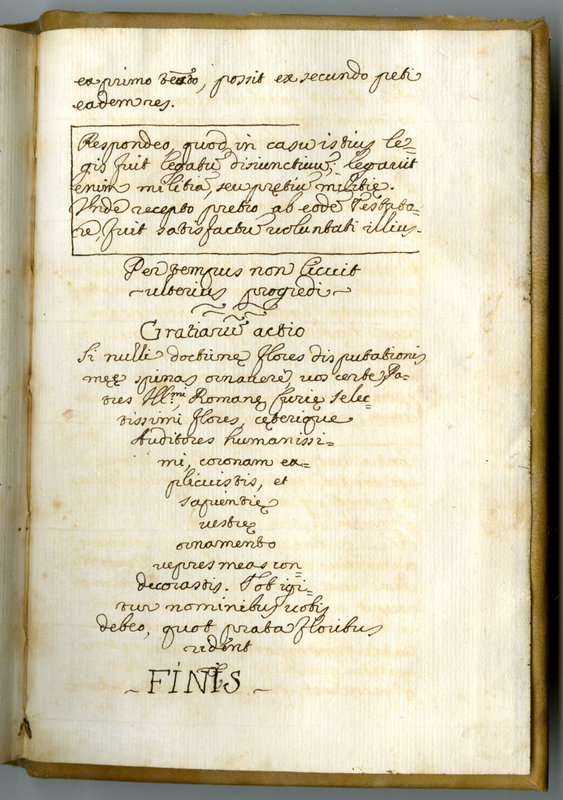 ex primo testo, possit ex secundo peti
eadem res.
Respondeo, quod in casu istius le=
gis fuit legatũ disiunctivũ; legavit
enim militiã, seu pretiũ militię.
Unde recepto pretio ab eodẽ Testato=
re, fuit satisfactũ voluntati illius.
Per tempus non licuit
~ulterius progredi~
Gratiarũ actio
Si nulli doctrinę flores disputationis
meę spinas ornavere, vos certe Pa=
tres Ill.mi, Romanę Curię selec=
tissimi flores, cęterique
Auditores humanissi=
mi, coronam ex=
plicuistis, et
sapientię
vestrę
ornamento
vepres meas con=
decorastis. Tot igi=
tur nominibus vobis
debeo, quot prata floribus
ridẽnt
~ FINIS ~